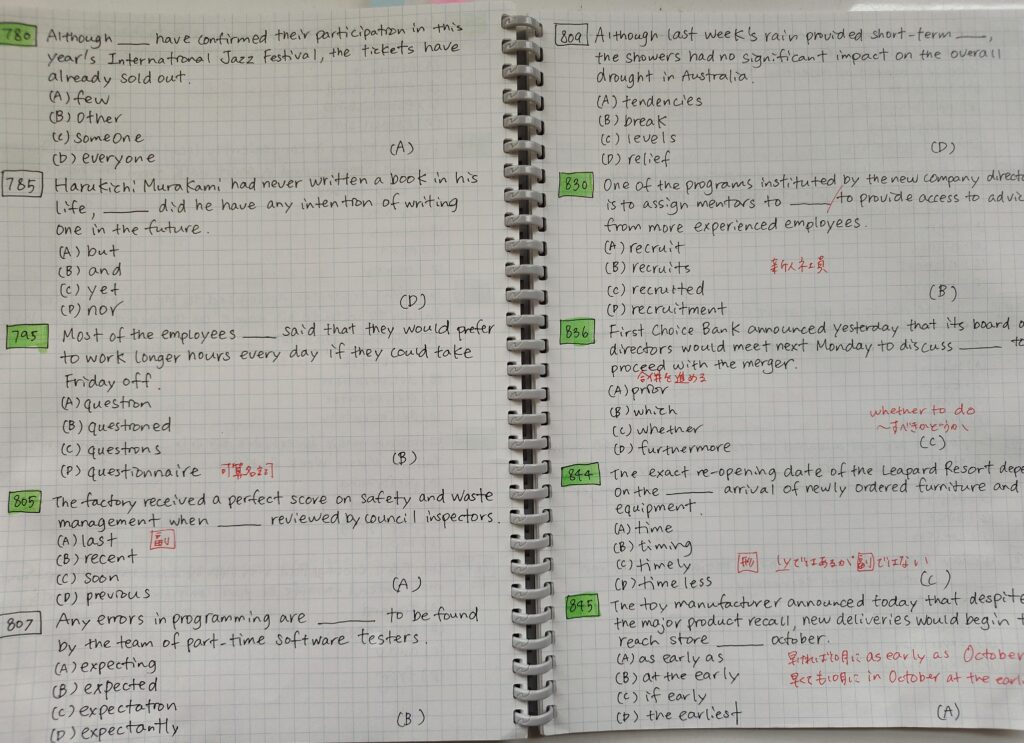 780 Although ____ have confirmed their participation in this
year's International Jazz Festival, the tickets have
already sold out.
(A) few
(B) other
(C) someone
(D) everyone
(A)
785 Harukichi Murakami had never written a book in his
life, ____ did he have any intention of writing
one in the future.
(A) but
(B) and
(C) yet
(D) nor
(D)
795 Most of the employees ____ said that they would prefer
to work longer hours every day if they could take
Friday off.
(A) question
(B) questioned
(C) questions
(D) questionnaire 可算名詞
(B)
805 The factory received a perfect score on safety and waste
management when ____ reviewed by council inspectors.
(A) last 副
(B) recent
(C) soon
(D) previous
(A)
807 Any errors in programming are ____ to be found
by the team of part-time software testers.
(A) expecting
(B) expected
(C) expectation
(D) expectantly
(B)
809 Although last week's rain provided short-term ____,
the showers had no significant impact on the overall
drought in Australia.
(A) tendencies
(B) break
(C) levels
(D) relief
(D)
830 One of the programs instituted by the new company direct
is to assign mentors to ____ / to provide access to advic
from more experienced employees.
(A) recruit
(B) recruits 新入社員
(C) recruited
(D) recruitment
(B)
836 First Choice Bank announced yesterday that its board o
directors would meet next Monday to discuss ____ to
proceed with the merger.
合併を進める
(A) prior
(B) which
(C) whether
(D) furthermore
whether to do
〜すべきかどうか
(C)
844 The exact re-opening date of the Leapard Resort depe
on the ____ arrival of newly ordered furniture and
equipment.
(A) time
(B) timing
(C) timely 形 lyではあるが副ではない
(D) timeless
(C)
845 The toy manufacturer announced today that despite
the major product recall, new deliveries would begin t
reach store ____ october.
(A) as early as 早ければ10月に as early as October
(B) at the early 早くても10月に in October at the earli
(C) if early
(D) the earliest
(A)